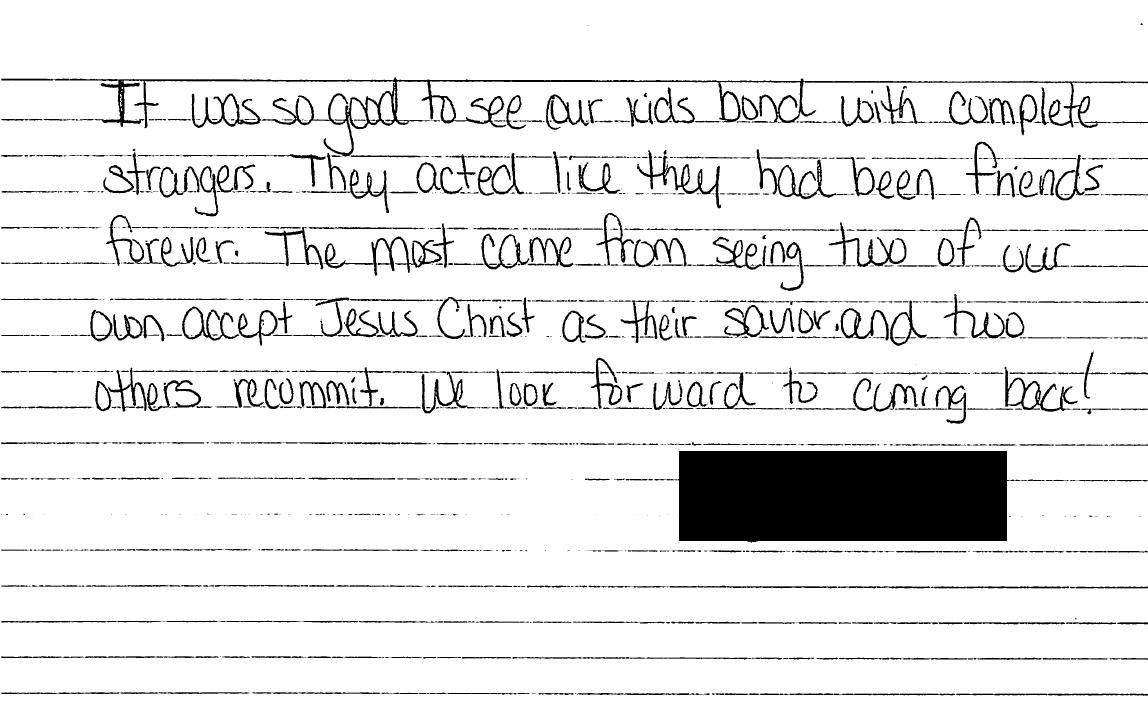 It was so good to see our kids bond with complete
strangers. They acted like they had been friends
forever. The most came from seeing two of our
own accept Jesus Christ as their savior and two
others recommit. We look forward to coming back!